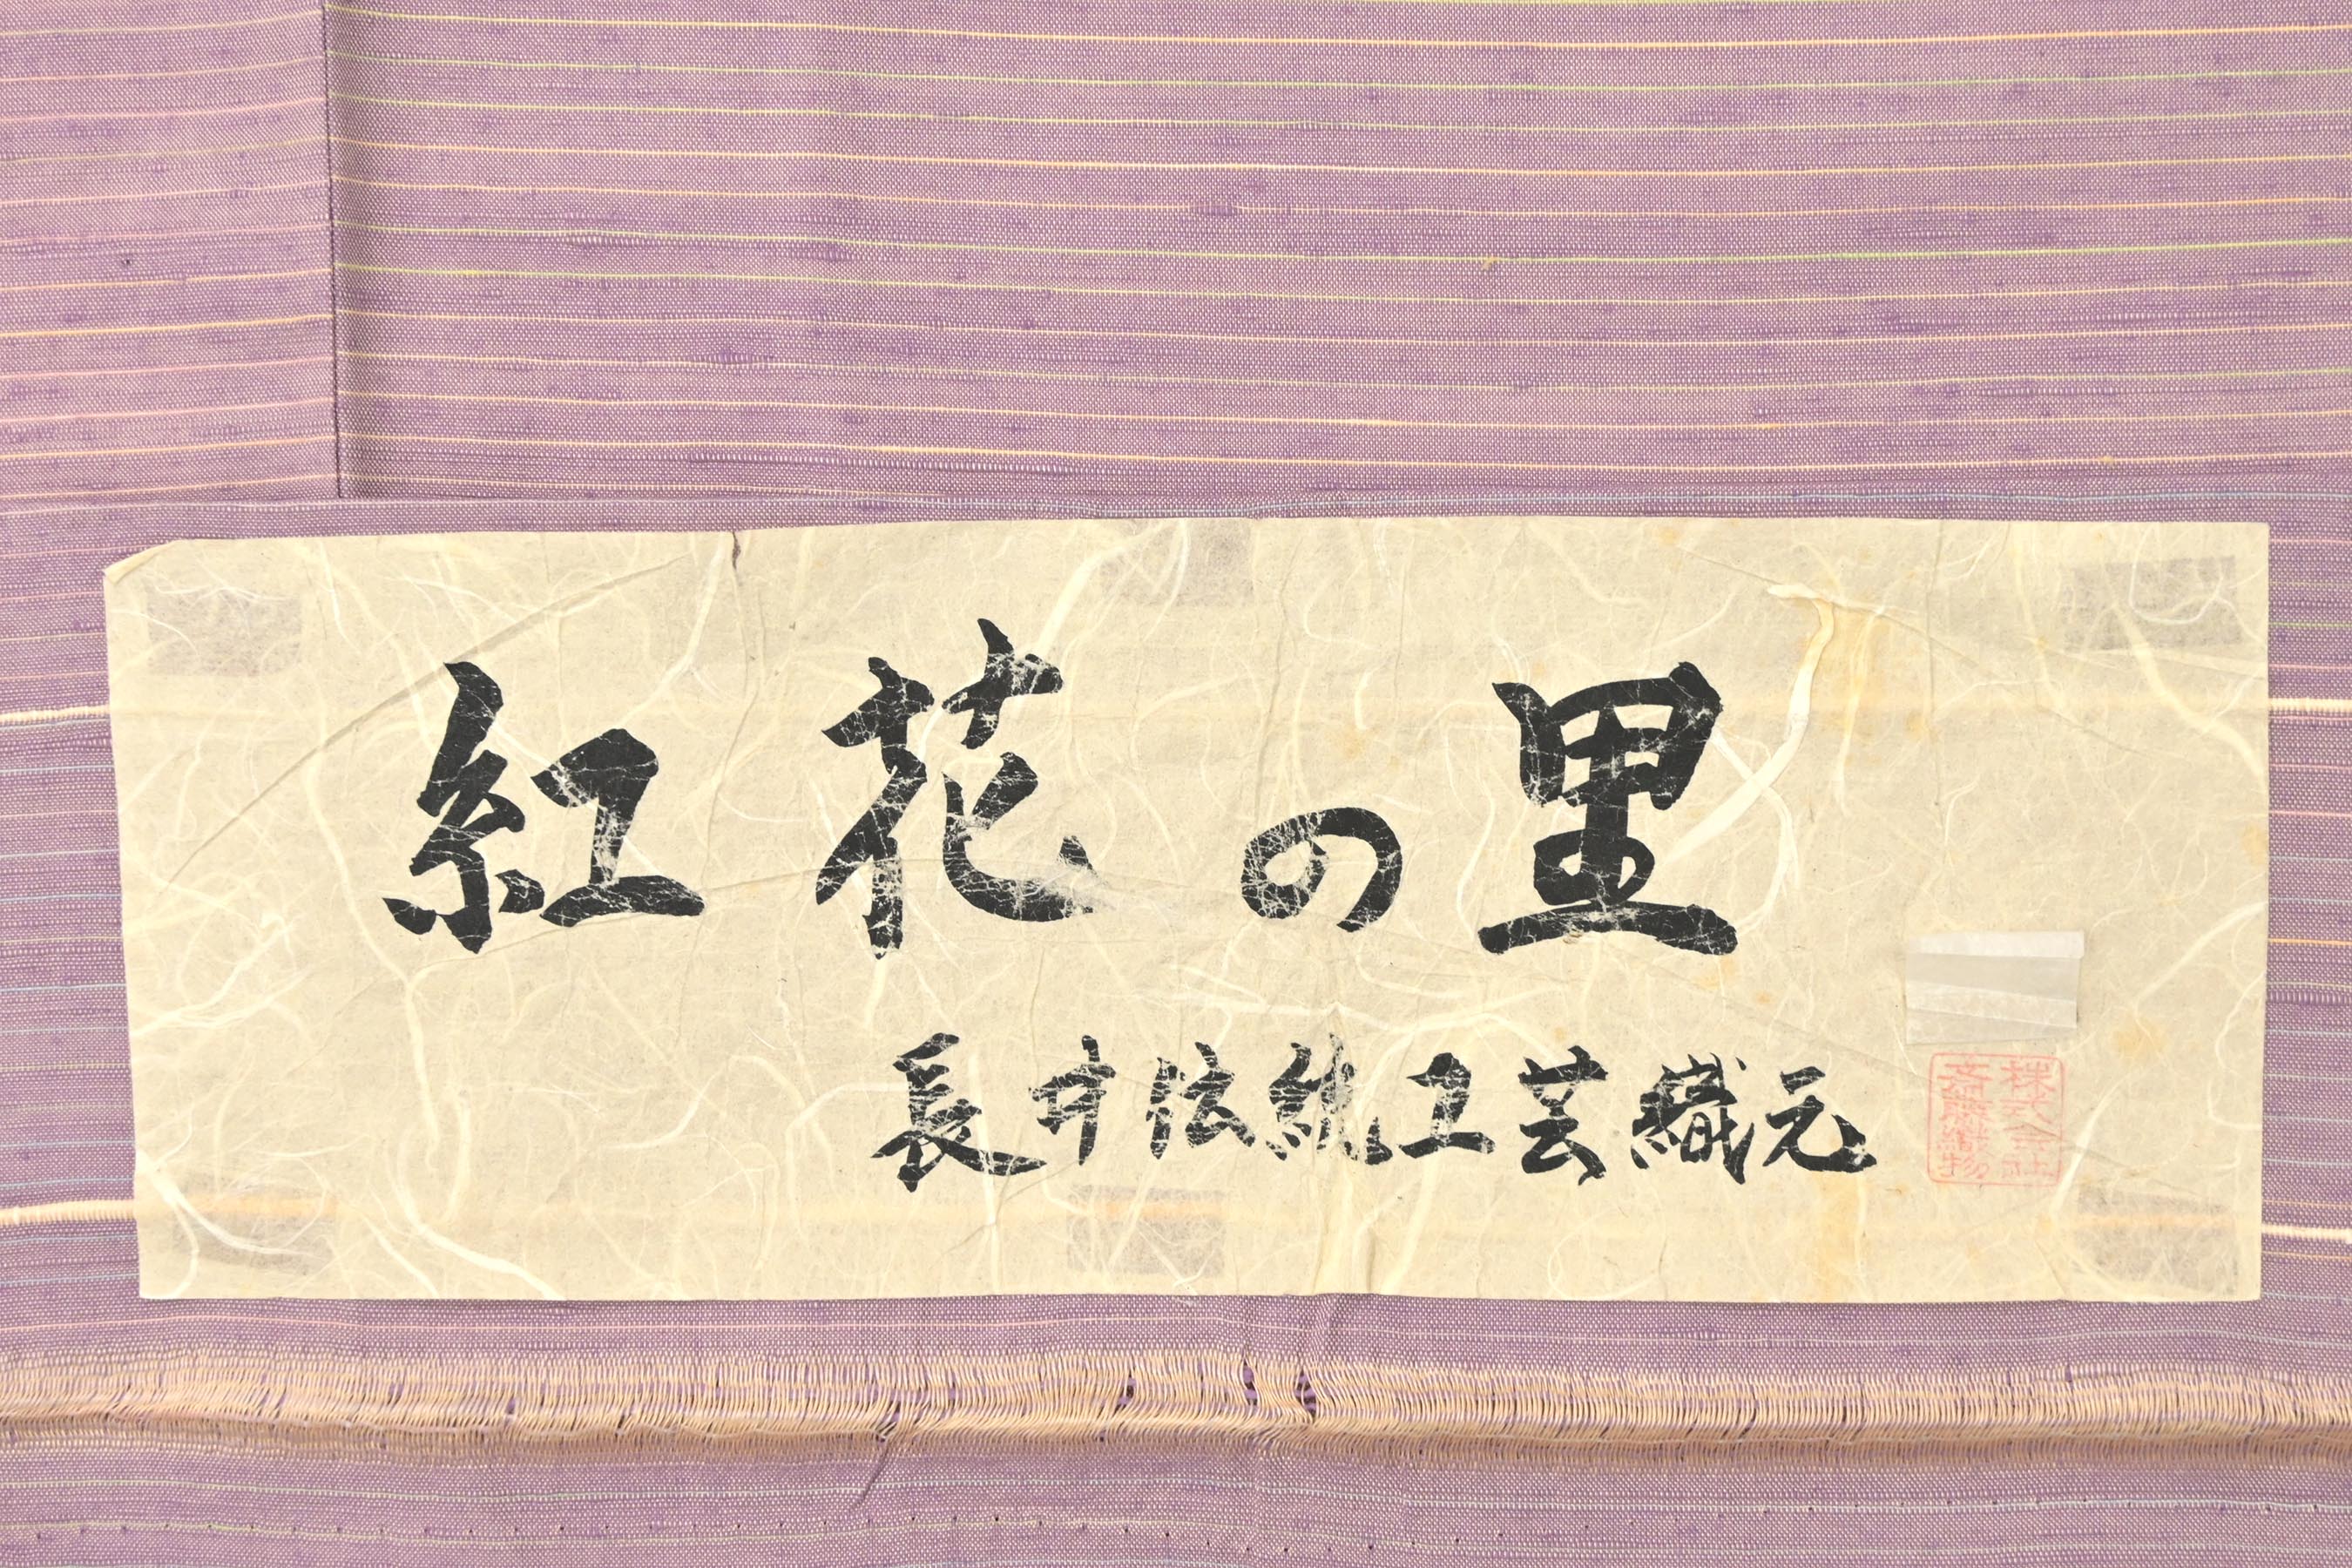 紅花の里
長井伝統工芸織元
株式会社
斎藤織物